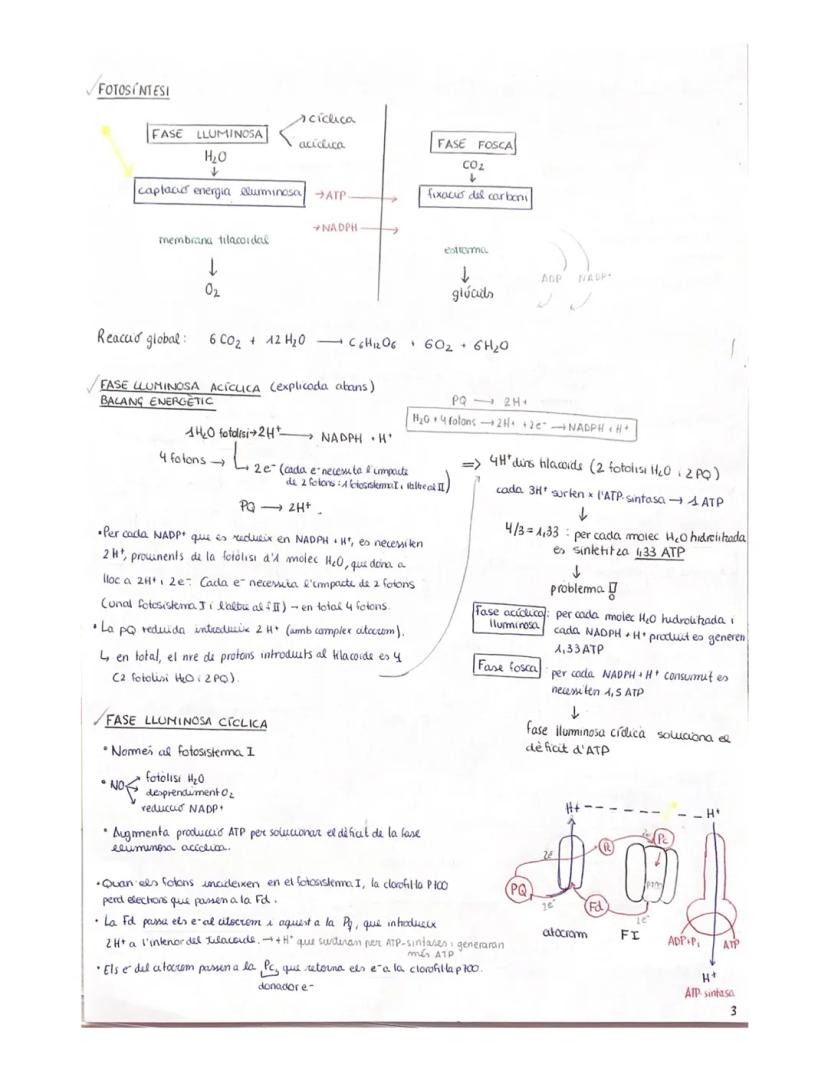 FOTOSÍNTESI
FASE LLUMINOSA
cíclica
acíclica
H2O
captació energia lluminosa
→ATP
→NADPH
membrana tilacoidal
O2
FASE FOSCA
CO2
fixació del carboni
estroma
glúcids
ADP NADP+
Reacció global: 6 CO2 + 12 H2O → C6H12O6 + 6O2 + 6H2O
FASE LLUMINOSA ACÍCLICA (explicada abans)
BALANÇ ENERGÈTIC
1H2O fotòlisi→2H+ → NADPH + H+
4 fotons → 2e- (cada e- necessita l'impacte
de 2 fotons: 1 fotosistema I i l'altre al II)
PQ → 2H+.
•Per cada NADP+ que es redueix en NADPH + H+, es necessiten
2 H+, provinents de la fotòlisi d'1 molec H2O, que dona a
lloc a 2H+ i 2e-. Cada e- necessita l'impacte de 2 fotons
(un al fotosistema I i l'altre al f II) → en total 4 fotons.
• La PQ reduida introdueix 2 H+ (amb complex citocrom).
↳ en total, el nre de protons introduits al tilacoide es 4
(2 fotòlisi H2O i 2 PQ).
PQ → 2H+
H2O + 4 fotons → 2H+ + 2e- → NADPH + H+
=> 4H+ dins tilacoide (2 fotòlisi H2O i 2 PQ)
cada 3H+ surten x l'ATP-sintasa → 1 ATP
↓
4/3 = 1,33 : per cada molec H2O hidrolitzada
es sintetitza 1,33 ATP
↓
problema !
Fase acíclica lluminosa: per cada molec H2O hidrolitzada i
cada NADPH + H+ produit es generen
1,33 ATP
Fase fosca: per cada NADPH + H+ consumit es
necessiten 1,5 ATP
↓
fase lluminosa cíclica soluciona el
dèficit d'ATP
FASE LLUMINOSA CÍCLICA
• Només al fotosistema I
• NO
fotòlisi H2O
desprendiment O2
reducció NADP+
• Augmenta producció ATP per solucionar el dèficit de la fase
lluminosa acíclica.
• Quan els fotons incideixen en el fotosistema I, la clorofil·la P700
perd electrons que passen a la Fd.
• La Fd passa els e- al citocrom i aquest a la Pq, que introdueix
2H+ a l'interior del tilacoide. → + H+ que surtiran per ATP-sintases i generaran
més ATP
• Els e- del citocrom passen a la Pc, que retorna els e- a la clorofil·la p700.
donador e-
H+ H+
2e- 2e-
Pc Pc
PQ
P700
Fd
2e- 2e-
citocrom
FI
ADP+Pi
ATP
H+
ATP-sintasa
3